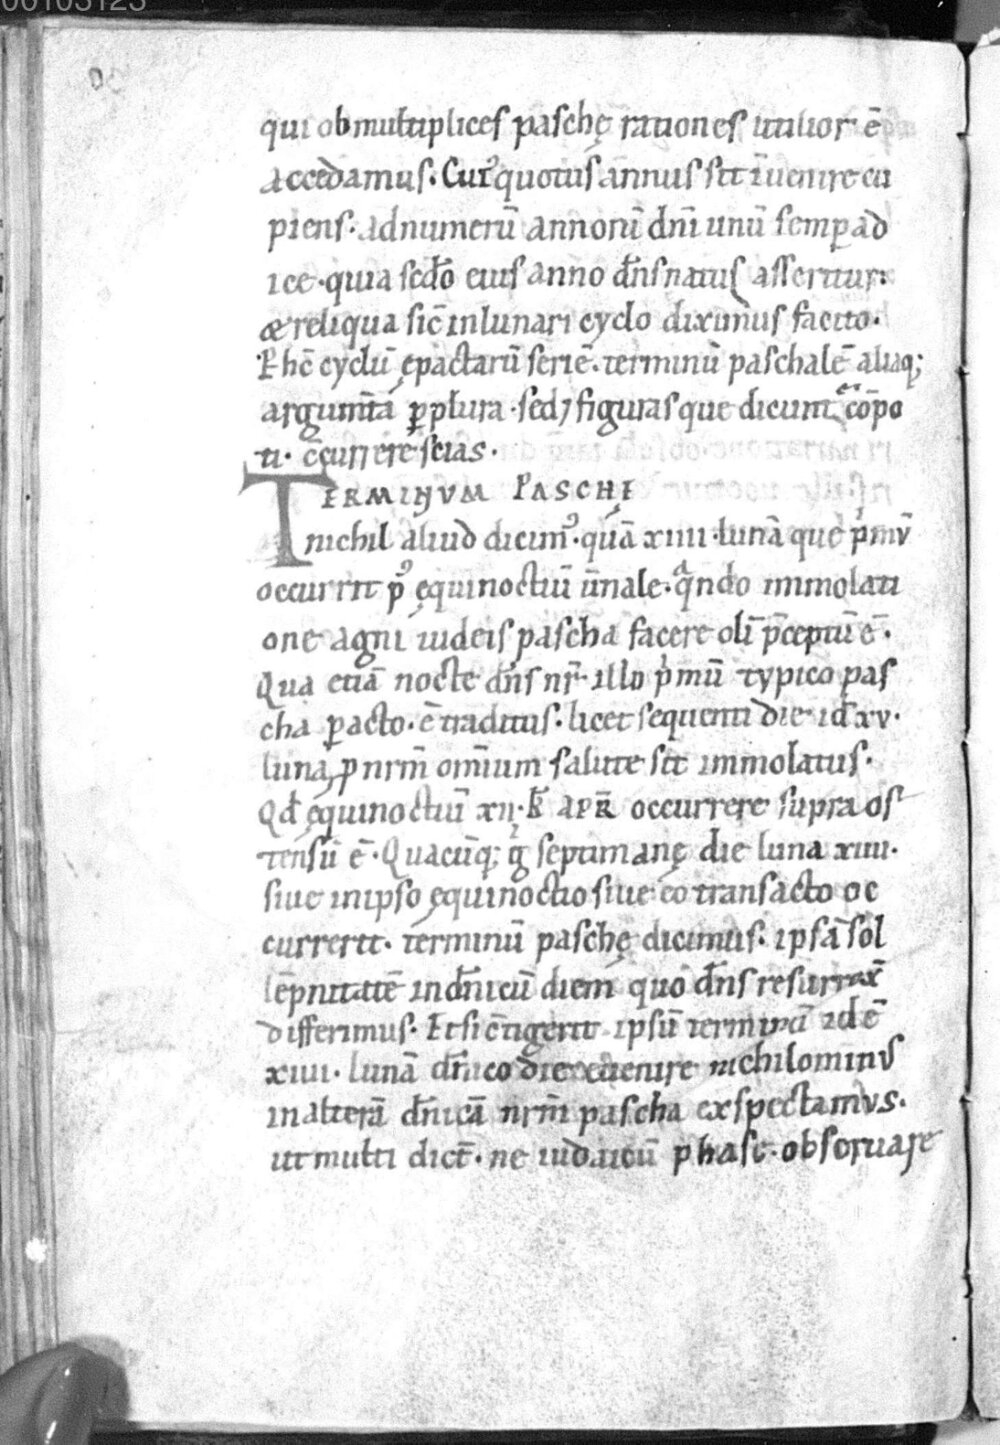 00103123
qui ob multiplices paschę rationes utilior ē
accedamus. Cuiꝰ quotus annus sit īuenire cu
piens. ad numerū annorū dn̄i unū semp̱ ad
ice. quia sc̄do eius anno dn̄s natus asseritur.
& reliqua sic̄ in lunari cyclo diximus facito.
P hc̄ cyclū ępactarū seriē. terminū paschalē aliaq;
argum̄ta p̱ plura. sed ⁊ figuras que dicunt̄ cōpo
ti. c̄currere scias.
TERMINVM PASCHĘ
nichil aliud dicimꝰ. quā xiiii. lunā que p̍mū
occurrit pꝰ ęquinoctiū ūnale. qͣndo immolati
one agni iudeis pascha facere oli p̄ceptū ē.
Qua etiā nocte dn̄s nr̄. illo p̍mū typico pas
cha p̱acto. ē traditus. licet sequenti die. id xv.
luna, ꝓ nrm̄ om̄ium salute sit immolatus.
Qd̄ ęquinoctiū xii. kl̄ APR̄ occurrere supra os
tensū ē. Quacūq; g̍ septimanę die luna xiiii.
siue in ipso ęquinoctio siue eo transacto oc
currerit. terminū paschę dicimus. ipsā sol
lēpnitatē in dn̄icū diem quo dn̄s resurrex̄
differimus. Et si c̄tigerit ipsū terminū id ē
xiiii. lunā dn̄ico die euenire nichilominus
in alterā dn̄icā nrm̄ pascha exspectamus.
ut multi dict̄. ne iudaicū phase. obseruare